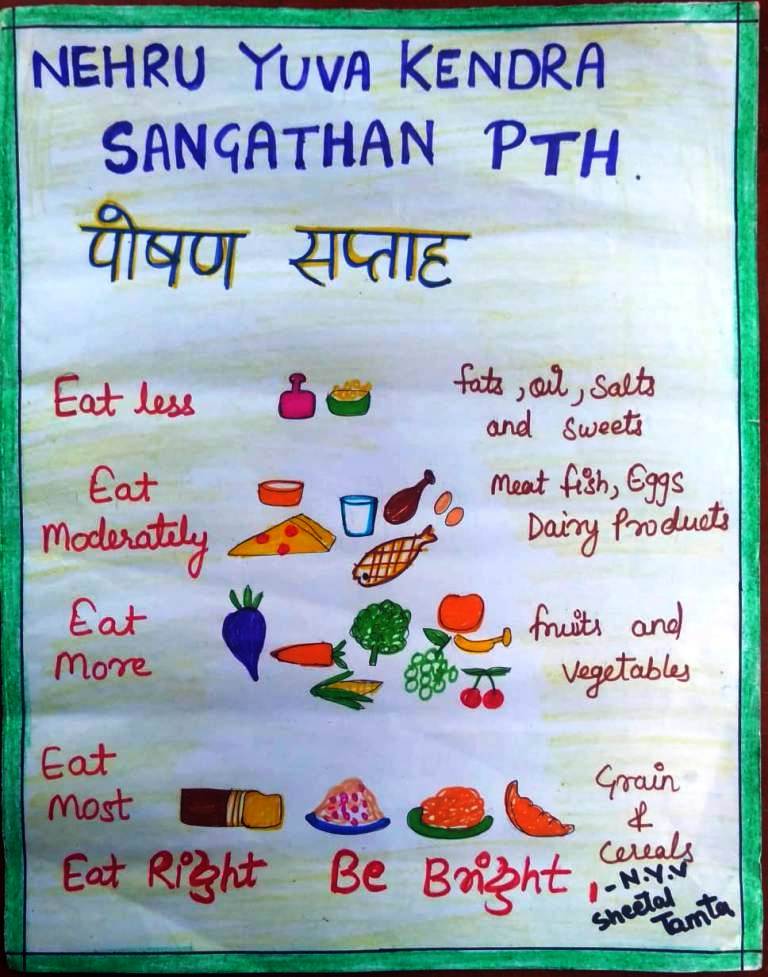 NEHRU YUVA KENDRA
SANGATHAN PTH.
पोषण सप्ताह
Eat less
fats, oil, salts
and sweets
Eat
Moderately
Meat fish, Eggs
Dairy Products
Eat
More
fruits and
vegetables
Eat
Most
Grain
&
Cereals
Eat Right Be Bright !
- N.Y.V
Sheetal
Tamta